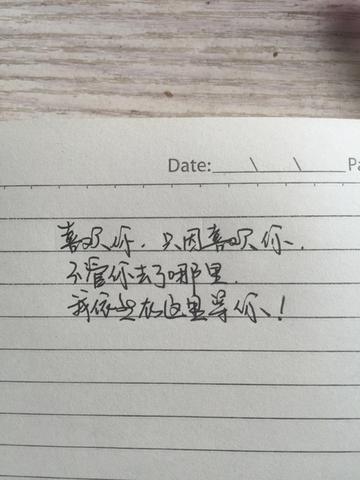 Date: \ \ Pa
喜欢你，只因喜欢你、
不管你去了哪里.
我依然在这里等你、!